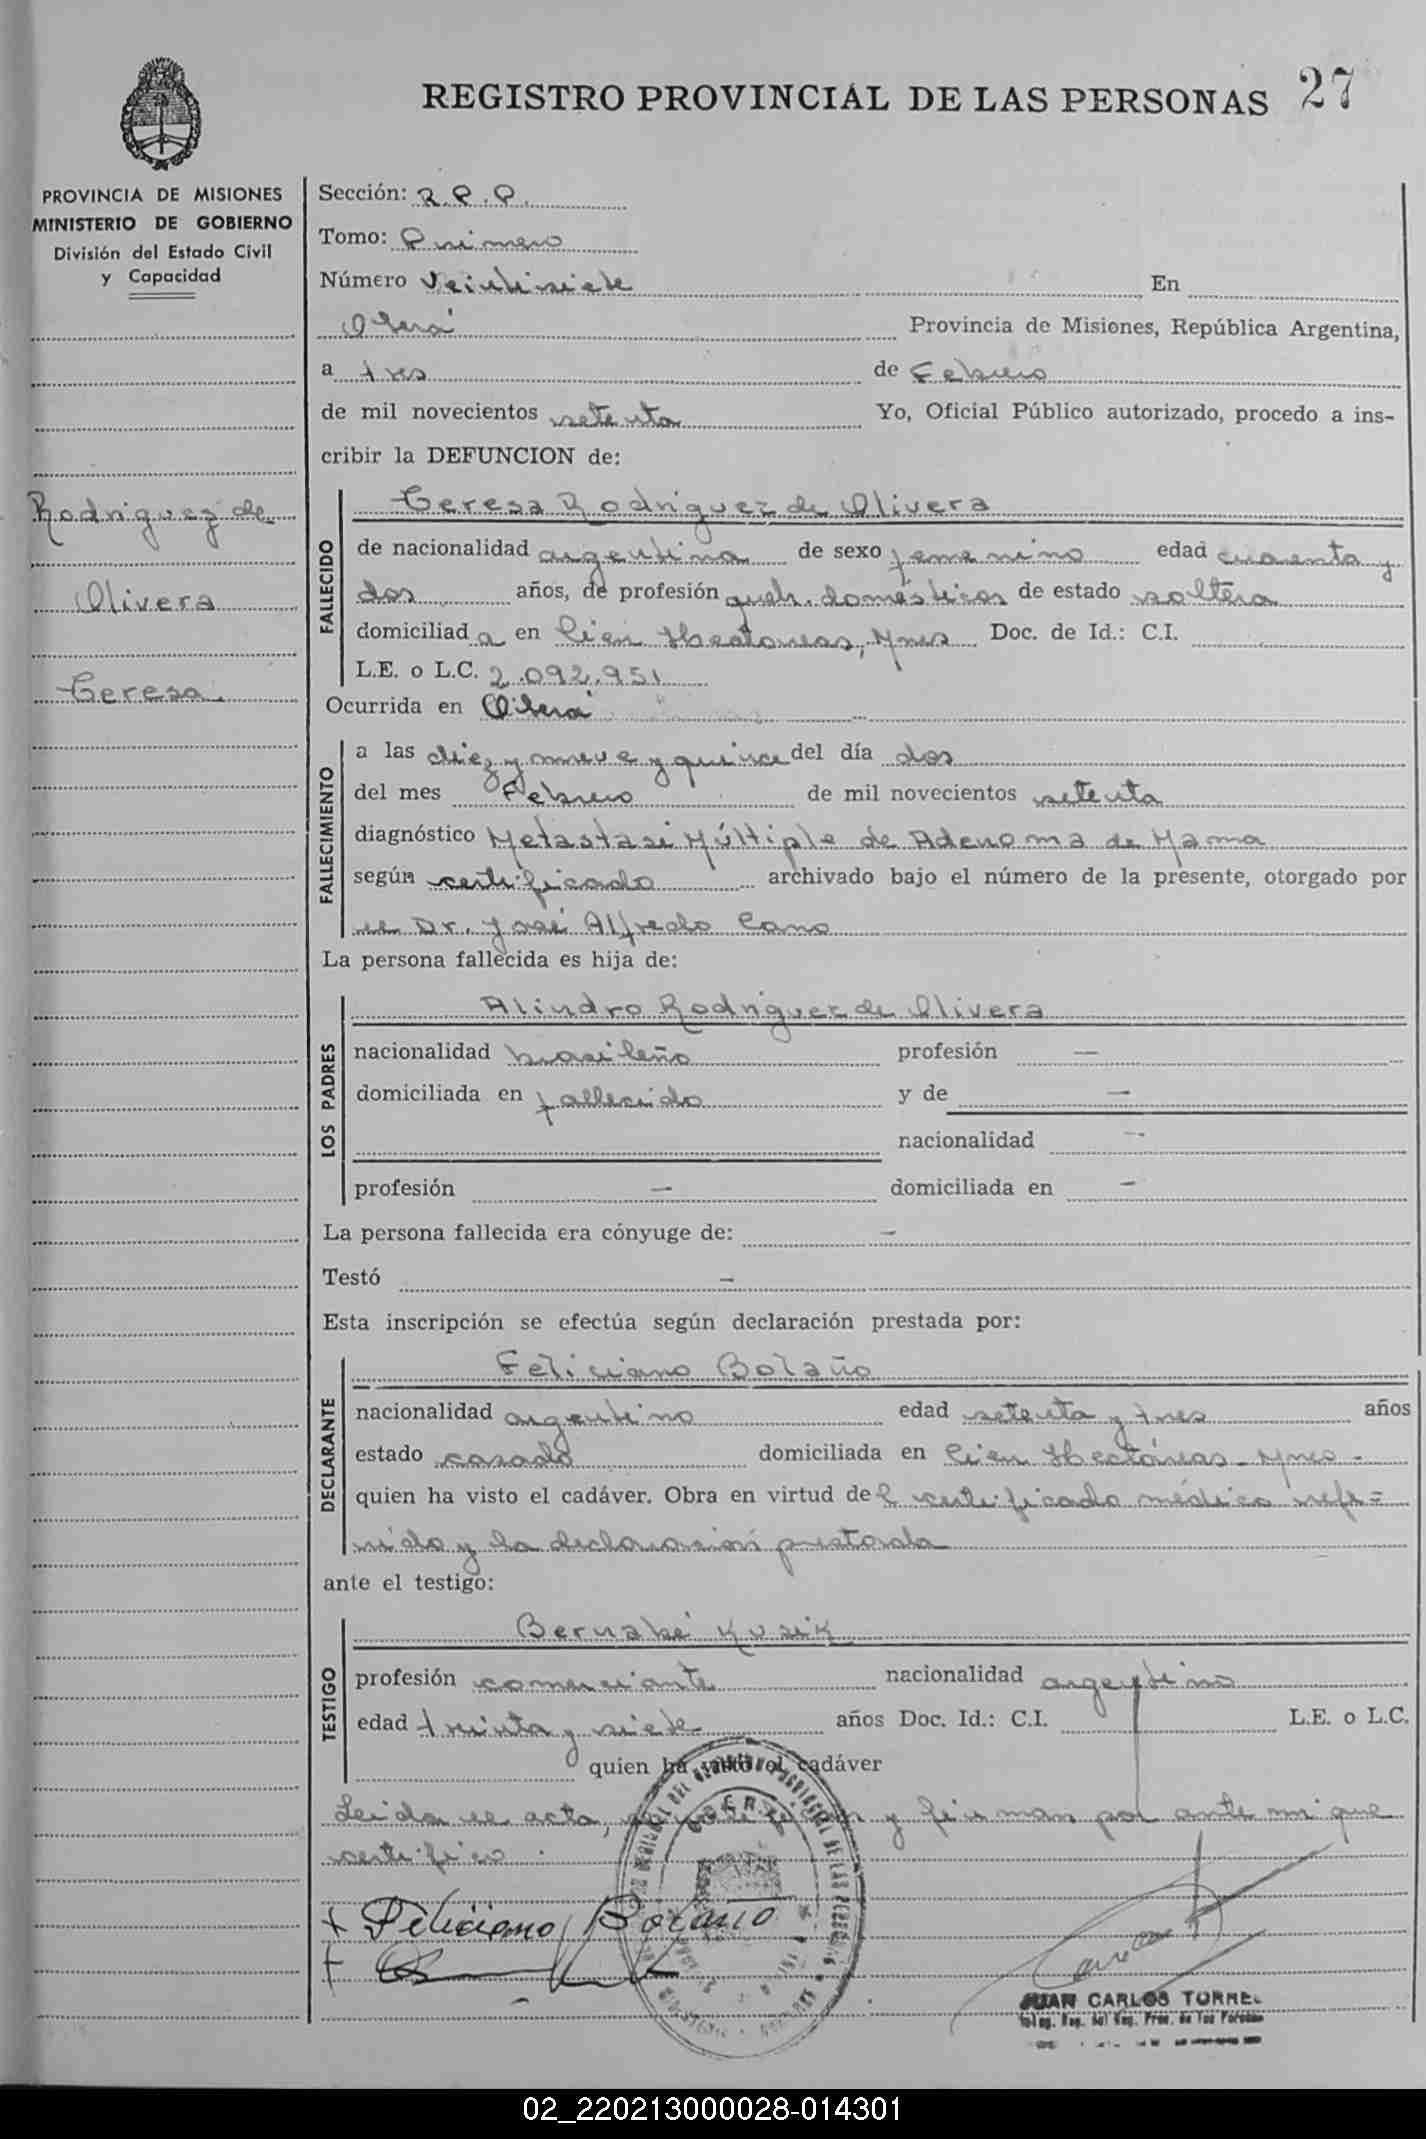 REGISTRO PROVINCIAL DE LAS PERSONAS 27
PROVINCIA DE MISIONES
MINISTERIO DE GOBIERNO
División del Estado Civil
y Capacidad
Rodriguez de
Olivera
Teresa.
Sección: R.P.P.
Tomo: Primero
Número Veintisiete En
Oberá Provincia de Misiones, República Argentina,
a tres de Febrero
de mil novecientos setenta Yo, Oficial Público autorizado, procedo a ins-
cribir la DEFUNCION de:
FALLECIDO
Teresa Rodriguez de Olivera
de nacionalidad argentina de sexo femenino edad cuarenta y
dos años, de profesión queh. domésticos de estado soltera
domiciliad a en Cien Hectáreas, Mnes Doc. de Id.: C.I.
L.E. o L.C. 2.092.951
Ocurrida en Oberá
FALLECIMIENTO
a las diez y nueve y quince del día dos
del mes Febrero de mil novecientos setenta
diagnóstico Metastasi Múltiple de Adenoma de Mama
según certificado archivado bajo el número de la presente, otorgado por
el Dr. José Alfredo Cano
La persona fallecida es hija de:
LOS PADRES
Alindro Rodriguez de Olivera
nacionalidad brasileño profesión —
domiciliada en fallecido y de —
nacionalidad —
profesión — domiciliada en —
La persona fallecida era cónyuge de: —
Testó —
Esta inscripción se efectúa según declaración prestada por:
DECLARANTE
Feliciano Bolaño
nacionalidad argentino edad setenta y tres años
estado casado domiciliada en Cien Hectáreas - Mnes -
quien ha visto el cadáver. Obra en virtud de l certificado médico refe=
rido y la declaración prestada
ante el testigo:
TESTIGO
Bernabé Kusik
profesión comerciante nacionalidad argentino
edad treinta y siete años Doc. Id.: C.I. L.E. o L.C.
quien ha visto el cadáver
Leida el acta, y firman por ante mi que
certifico.
Feliciano Bolano
JUAN CARLOS TORRE
02_220213000028-014301